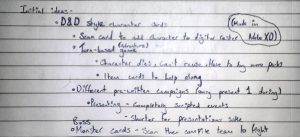 Initial ideas -
• D&D style character cards
(Made in Note XD)
• Scan card to add character to digital roster
• Turn-based game
• Character dies, can't reuse. Have to buy more packs
• Item cards to help along
• Different pre-written campaigns (only present 1 during)
• Presenting - Completely scripted events
- Shorter for presentations sake
Boss
• Monster cards - Scan them can file team to fight